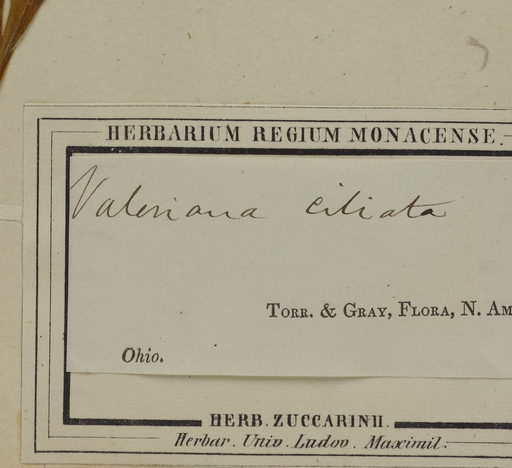 HERBARIUM REGIUM MONACENSE.
Valeriana ciliata
TORR. & GRAY, FLORA, N. AM
Ohio.
HERB. ZUCCARINII.
Herbar. Univ. Ludov. Maximil.